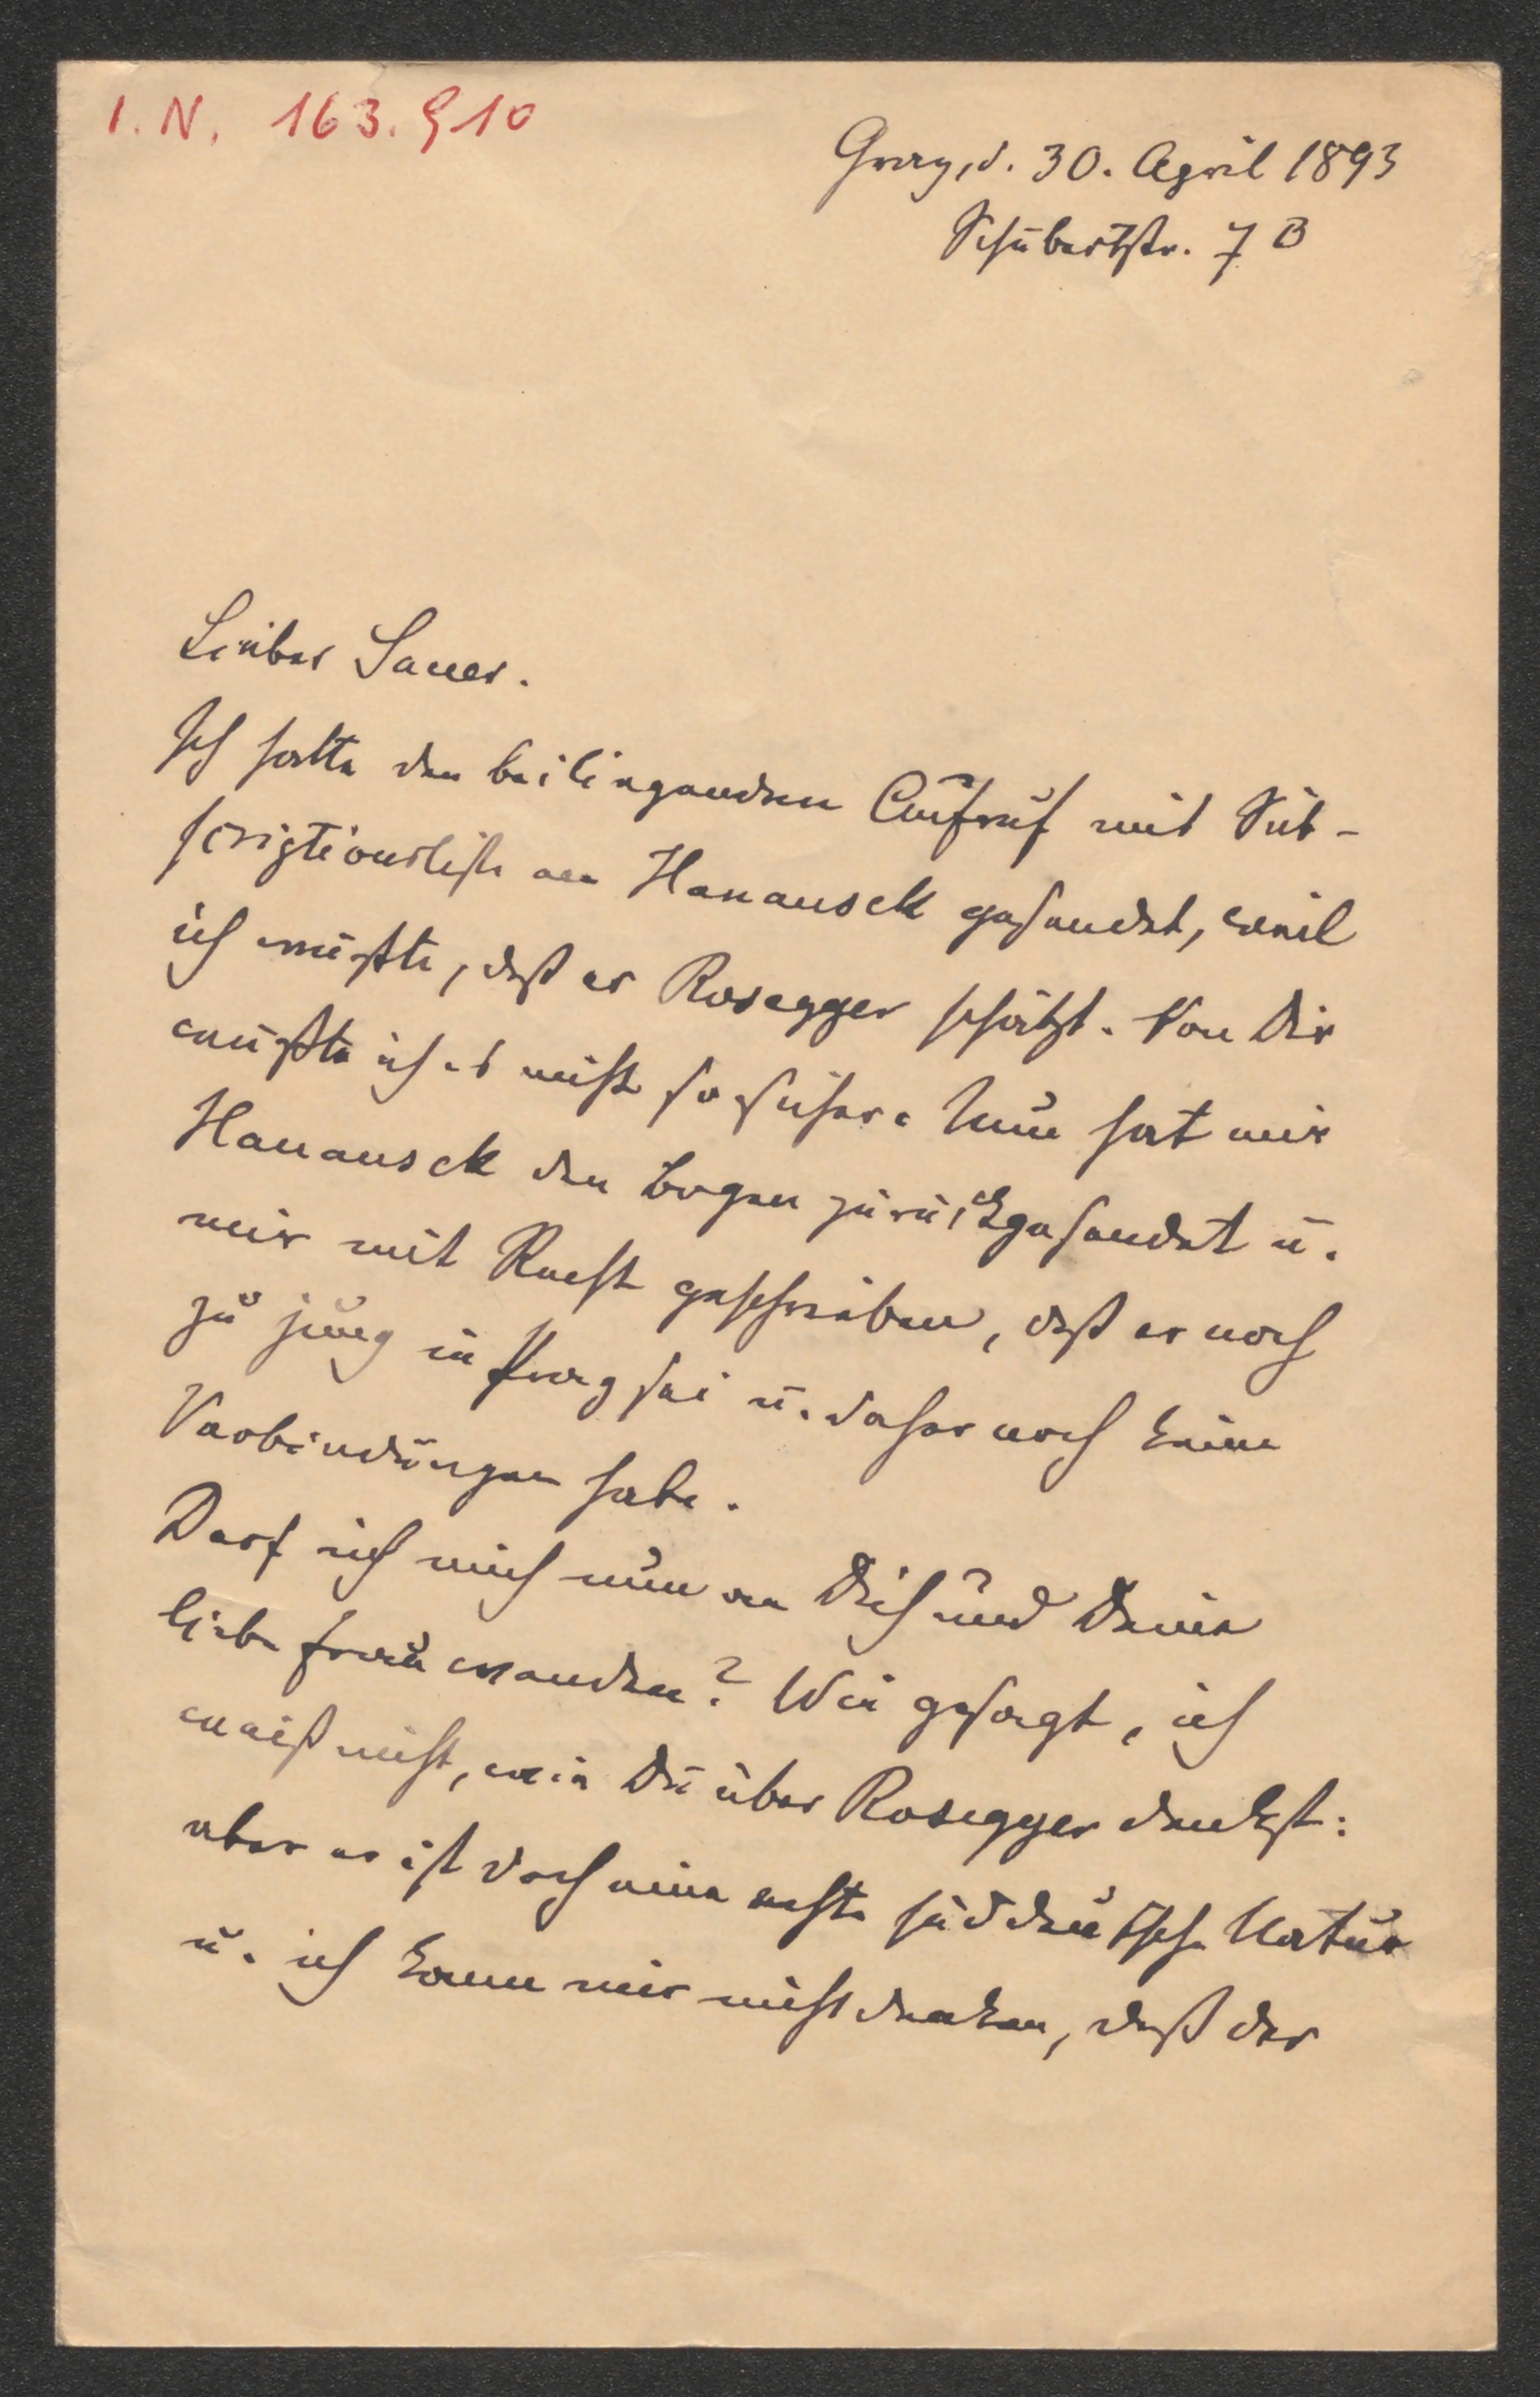 I. N. 163.910
Graz, d. 30. April 1893
Schubertstr. 7 B
Lieber Sauer.
Ich hatte den beiliegenden Aufruf mit Sub-
scriptionsliste an Hanausek gesandt, weil
ich wußte, daß er Rosegger schätzt. Von Dir
wußte ich es nicht so sicher. Nun hat mir
Hanausek den Bogen zurückgesandt u.
mir mit Recht geschrieben, daß er noch
zu jung in Prag sei u. daher noch keine
Verbindungen habe.
Darf ich mich nun an Dich und Deine
liebe Frau wenden? Wie gesagt, ich
weiß nicht, wie Du über Rosegger denkst:
aber er ist doch eine echte süddeutsche Natur
u. ich kann mir nicht denken, daß der